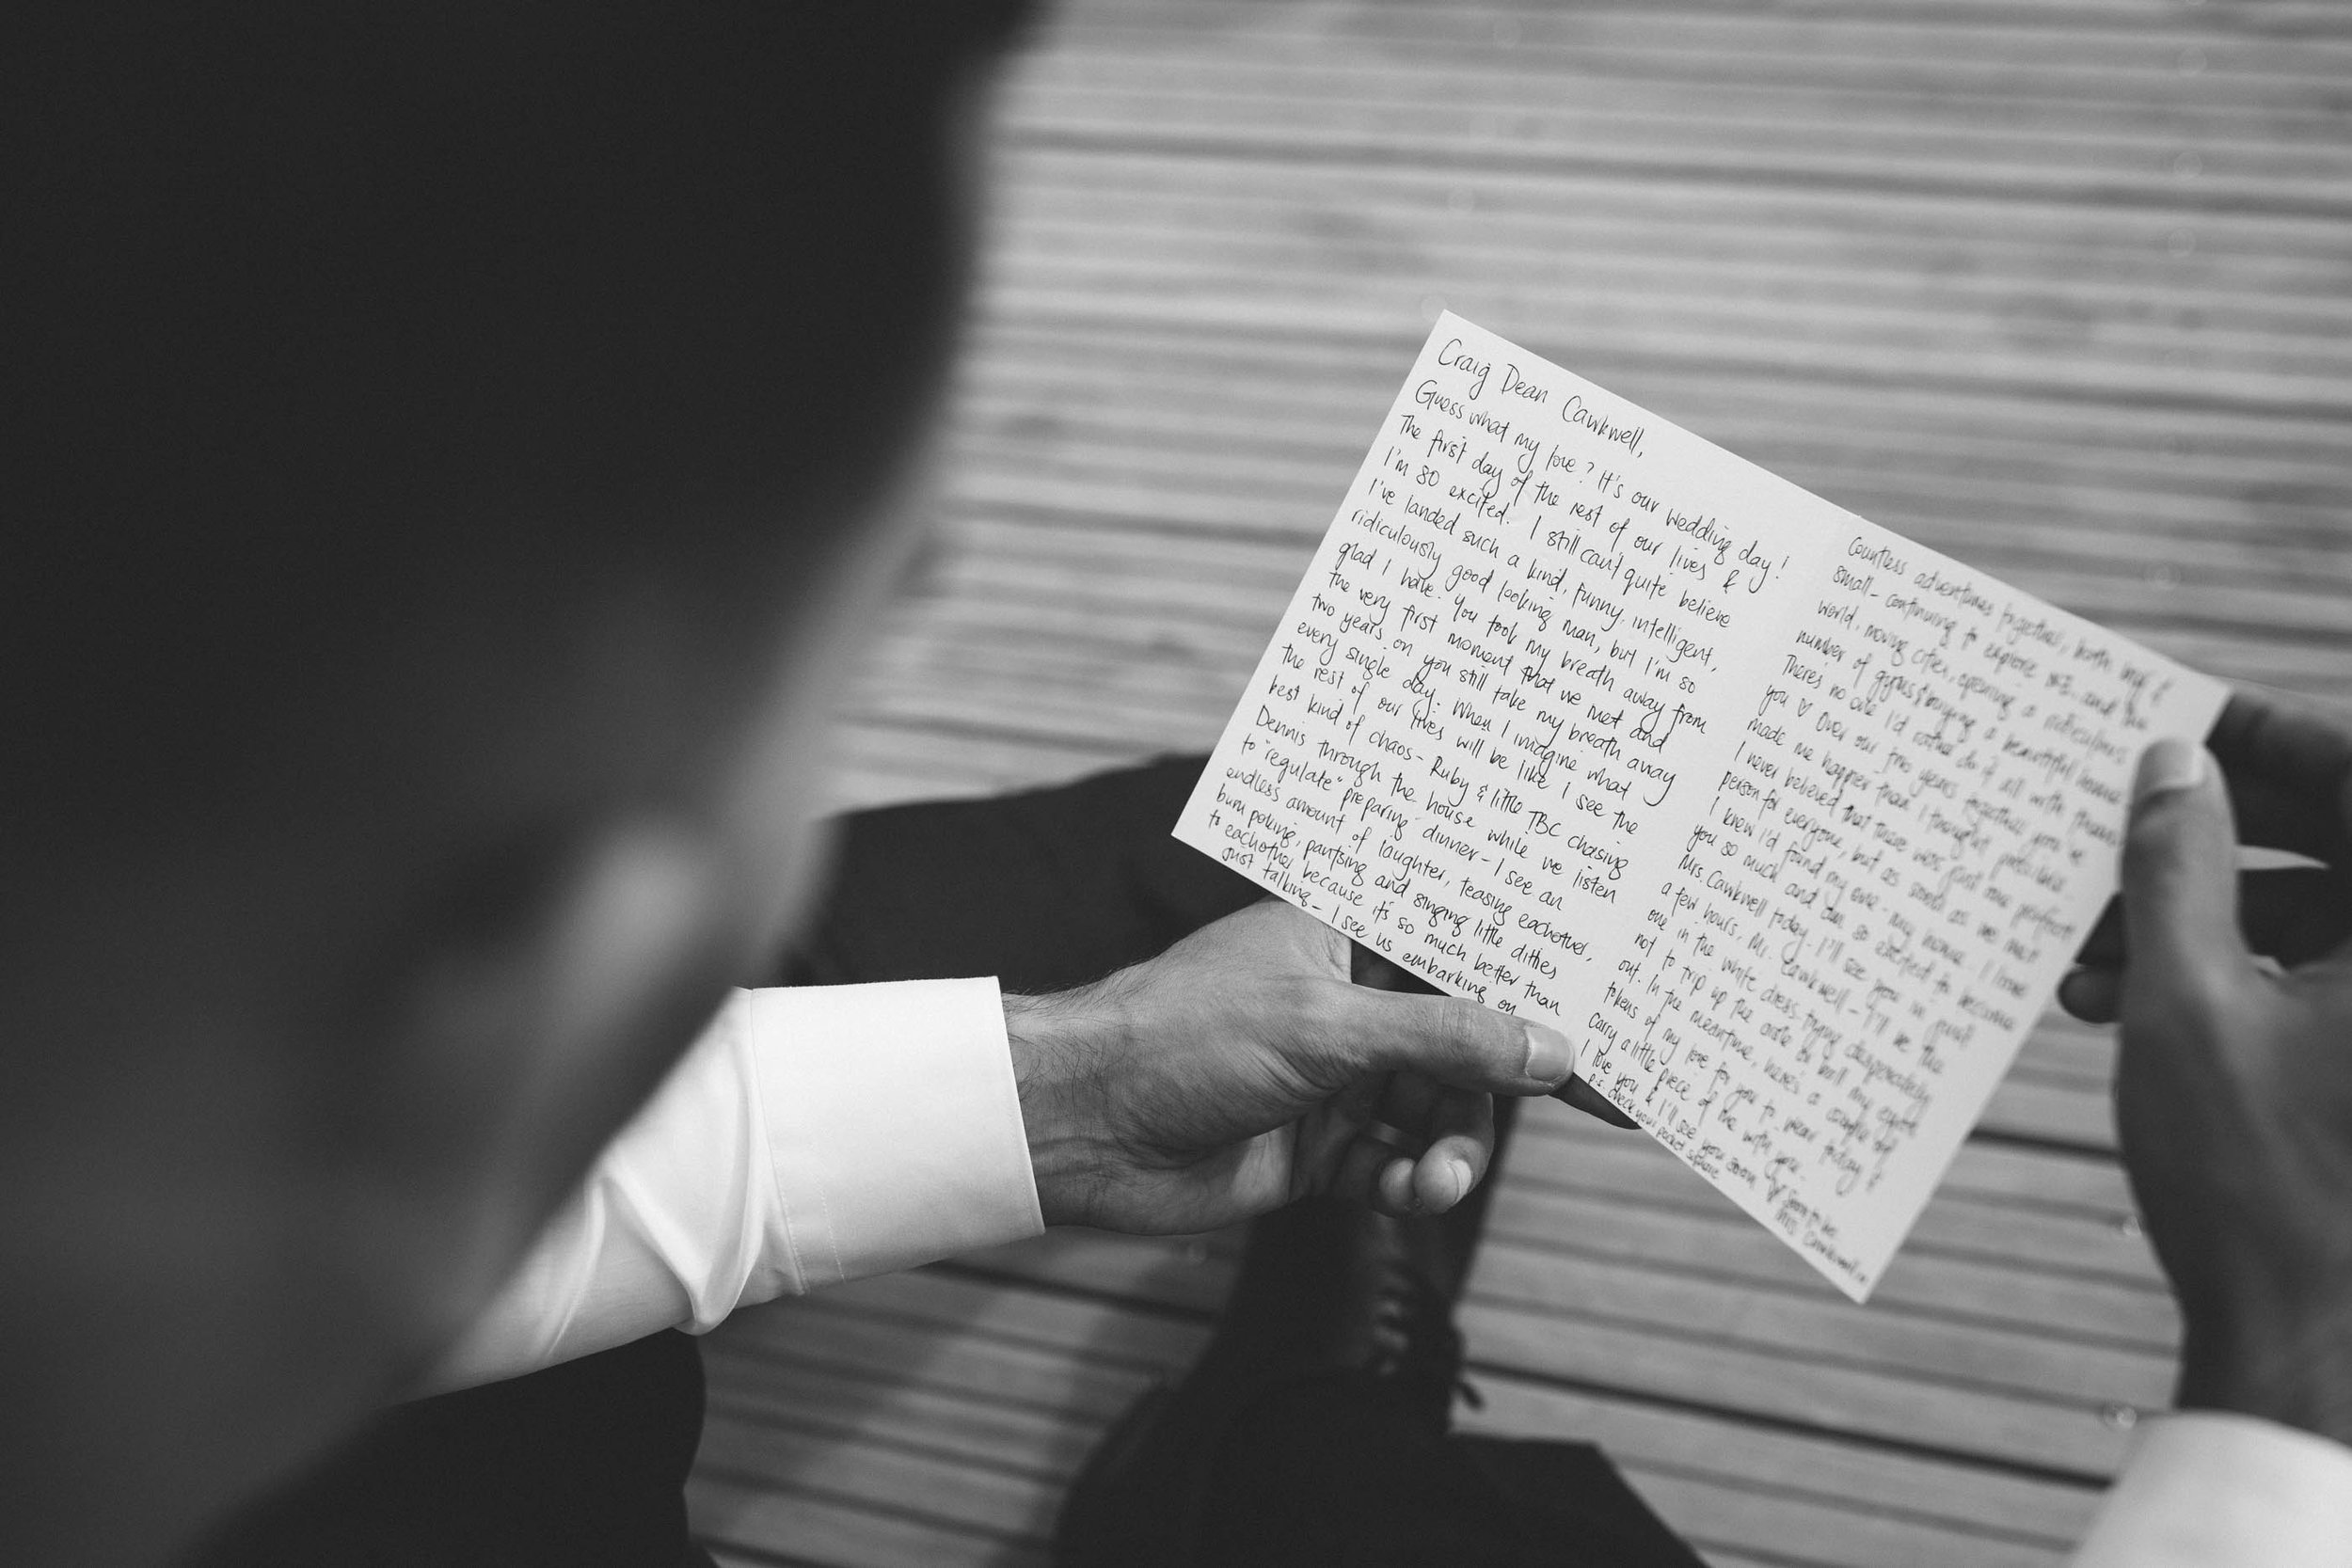 Craig Dean Cawkwell,
Guess what my love? It's our wedding day!
The first day of the rest of our lives &
I'm so excited. I still can't quite believe
I've landed such a kind, funny, intelligent,
ridiculously good looking man, but I'm so
glad I have. You took my breath away from
the very first moment that we met and
two years on you still take my breath away
every single day. When I imagine what
the rest of our lives will be like I see the
best kind of chaos - Ruby & little TBC chasing
Dennis through the house while we listen
to "regulate" preparing dinner - I see an
endless amount of laughter, teasing eachother,
bum poking, pantsing and singing little ditties
to eachother because it's so much better than
just talking - I see us embarking on
Countless adventures together, both big &
small - continuing to explore NZ and the
world, moving cities, opening a ridiculous
number of gyms & buying a beautiful home.
There's no one I'd rather do it all with than
you ♡ Over our two years together you've
made me happier than I thought possible.
I never believed that there was just one perfect
person for everyone, but as soon as we met
I knew I'd found my one - my home. I love
you so much and am so excited to become
Mrs. Cawkwell today. I'll see you in just
a few hours, Mr. Cawkwell - I'll be the
one in the white dress trying desperately
not to trip up the aisle or ball my eyes
out. In the meantime, here's a couple of
tokens of my love for you to wear today &
carry a little piece of me with you.
I love you & I'll see you soon ♡ Soon to be
p.s. check your pocket square Mrs Cawkwell